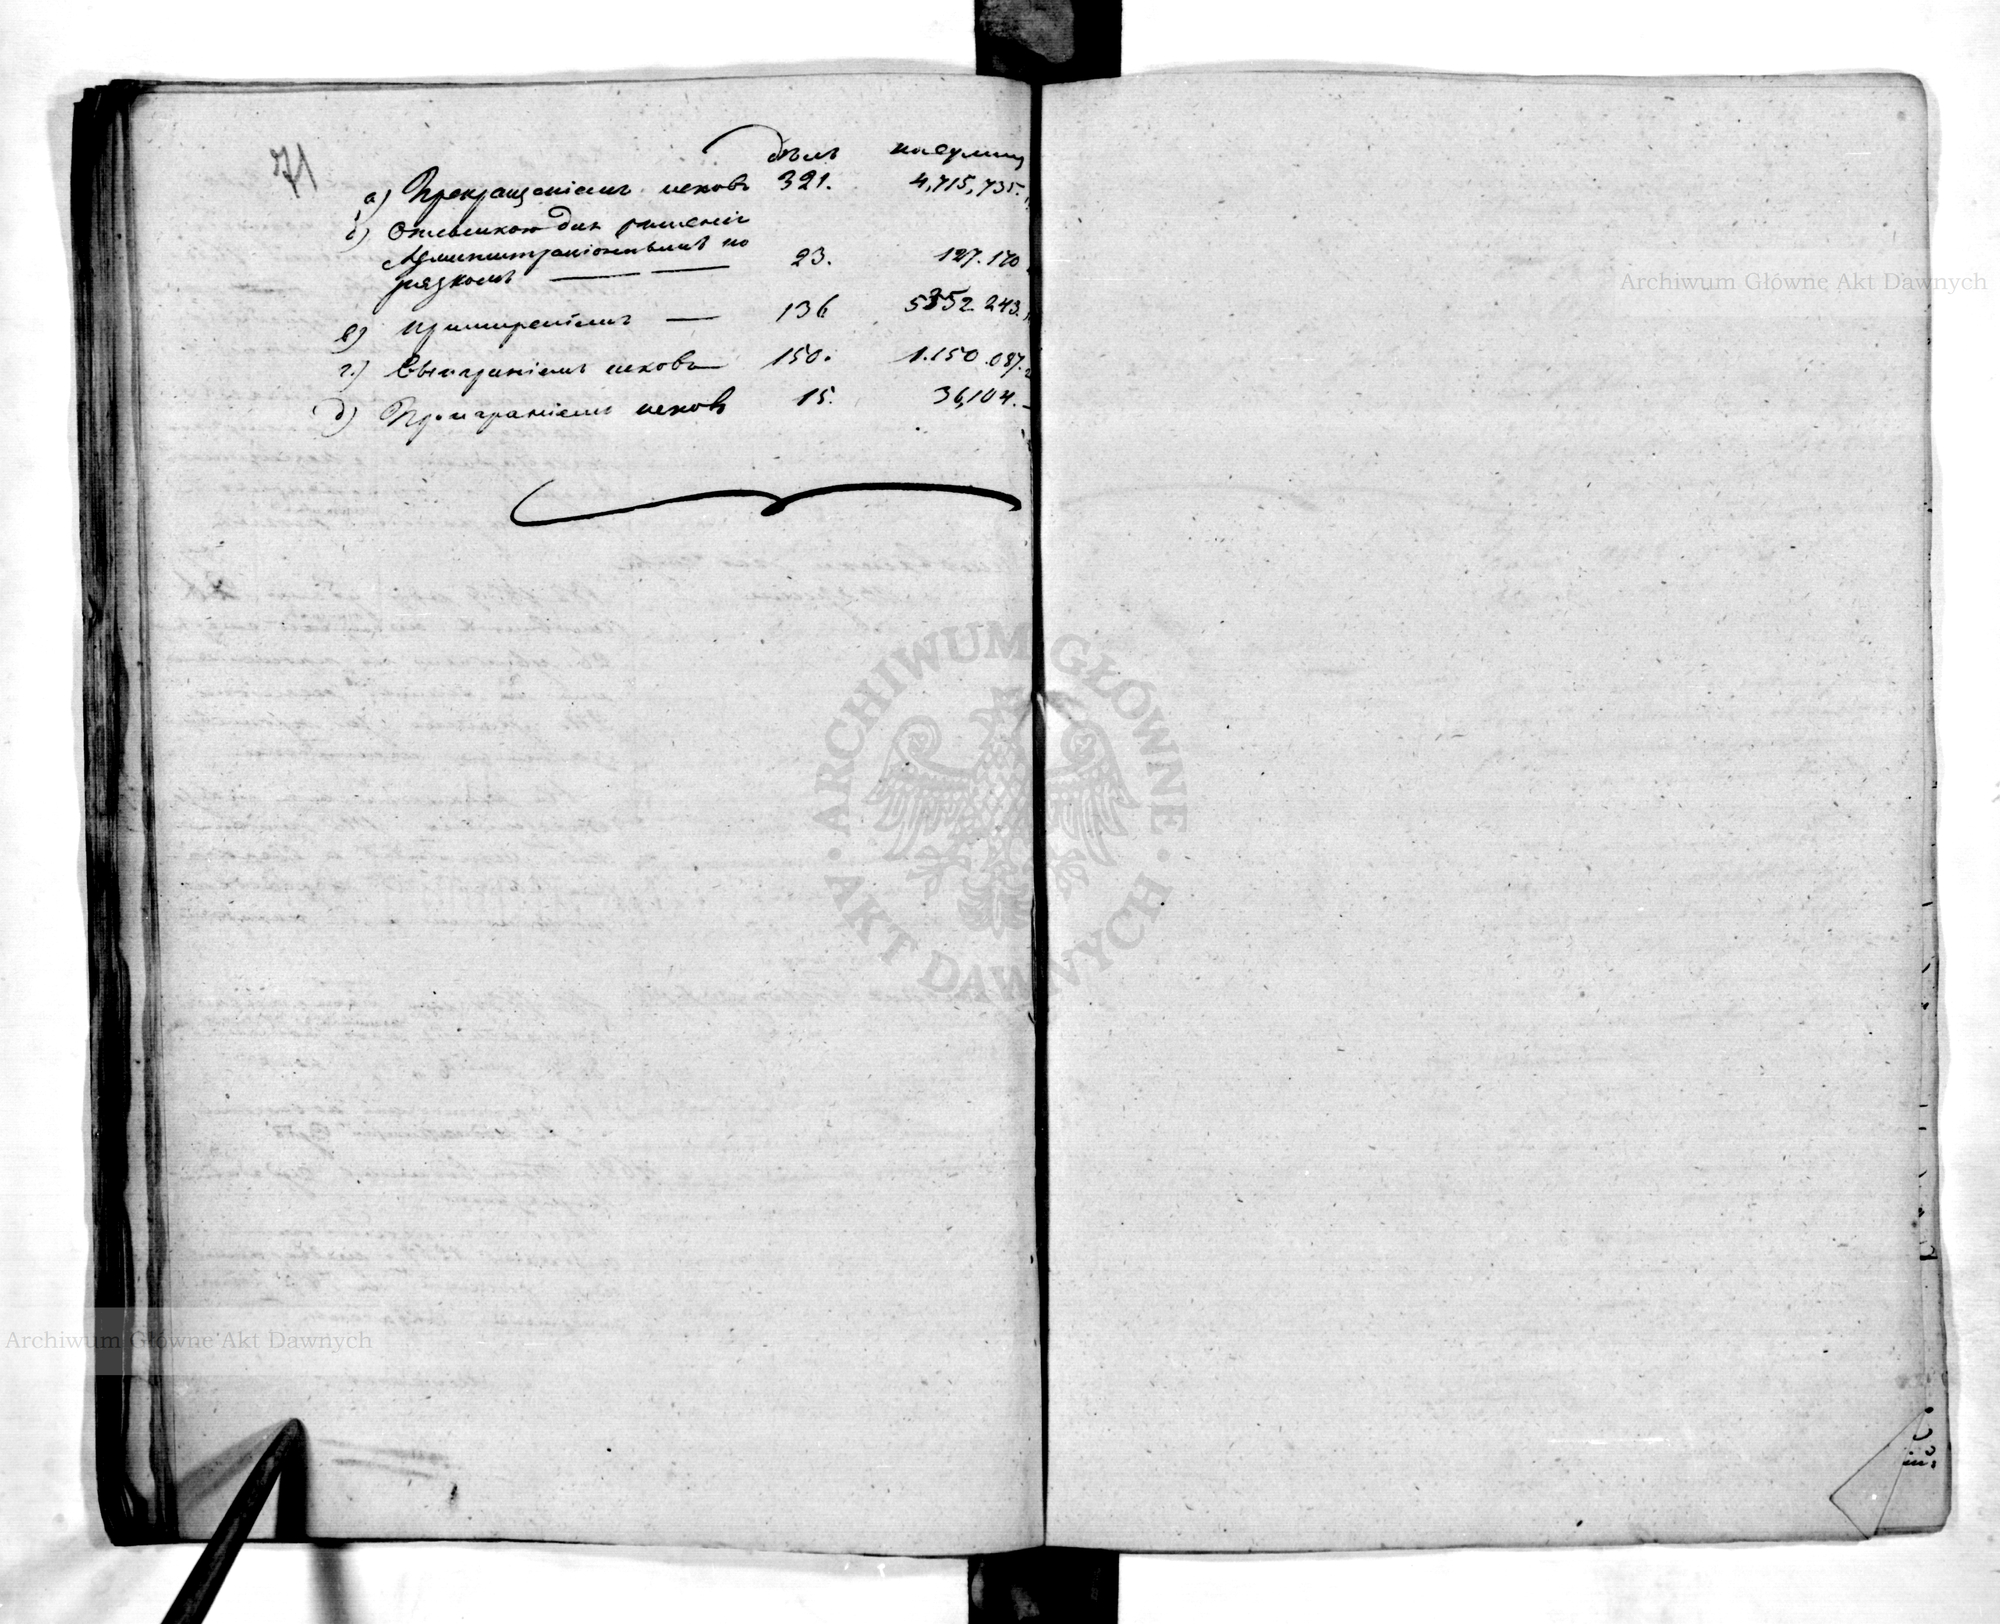 71
дѣлъ на сумму
а) Прекращеніемъ исковъ 321. 4,715,735.
б) Отсылкою для рѣшенія
Административнымъ по
рядкомъ 23. 127.170
в) примиреніемъ 136 5352.243.
г.) Выиграніемъ исковъ 150. 1.150.087.
д) Проиграніемъ исковъ 15. 36,104.
Archiwum Główne Akt Dawnych
ARCHIWUM GŁÓWNE
AKT DAWNYCH
Archiwum Główne Akt Dawnych